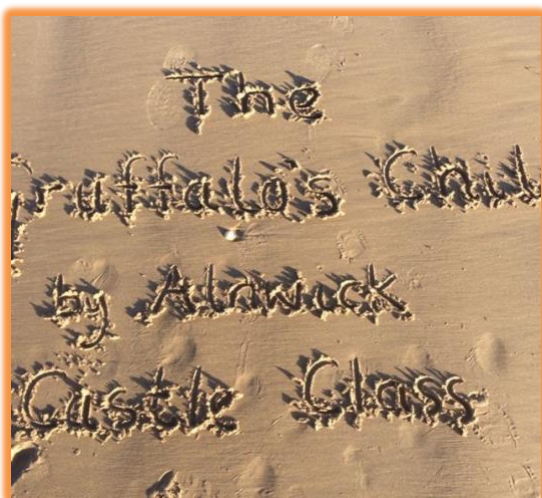 The
ruffalo's Chil
by Alnwick
Castle Class